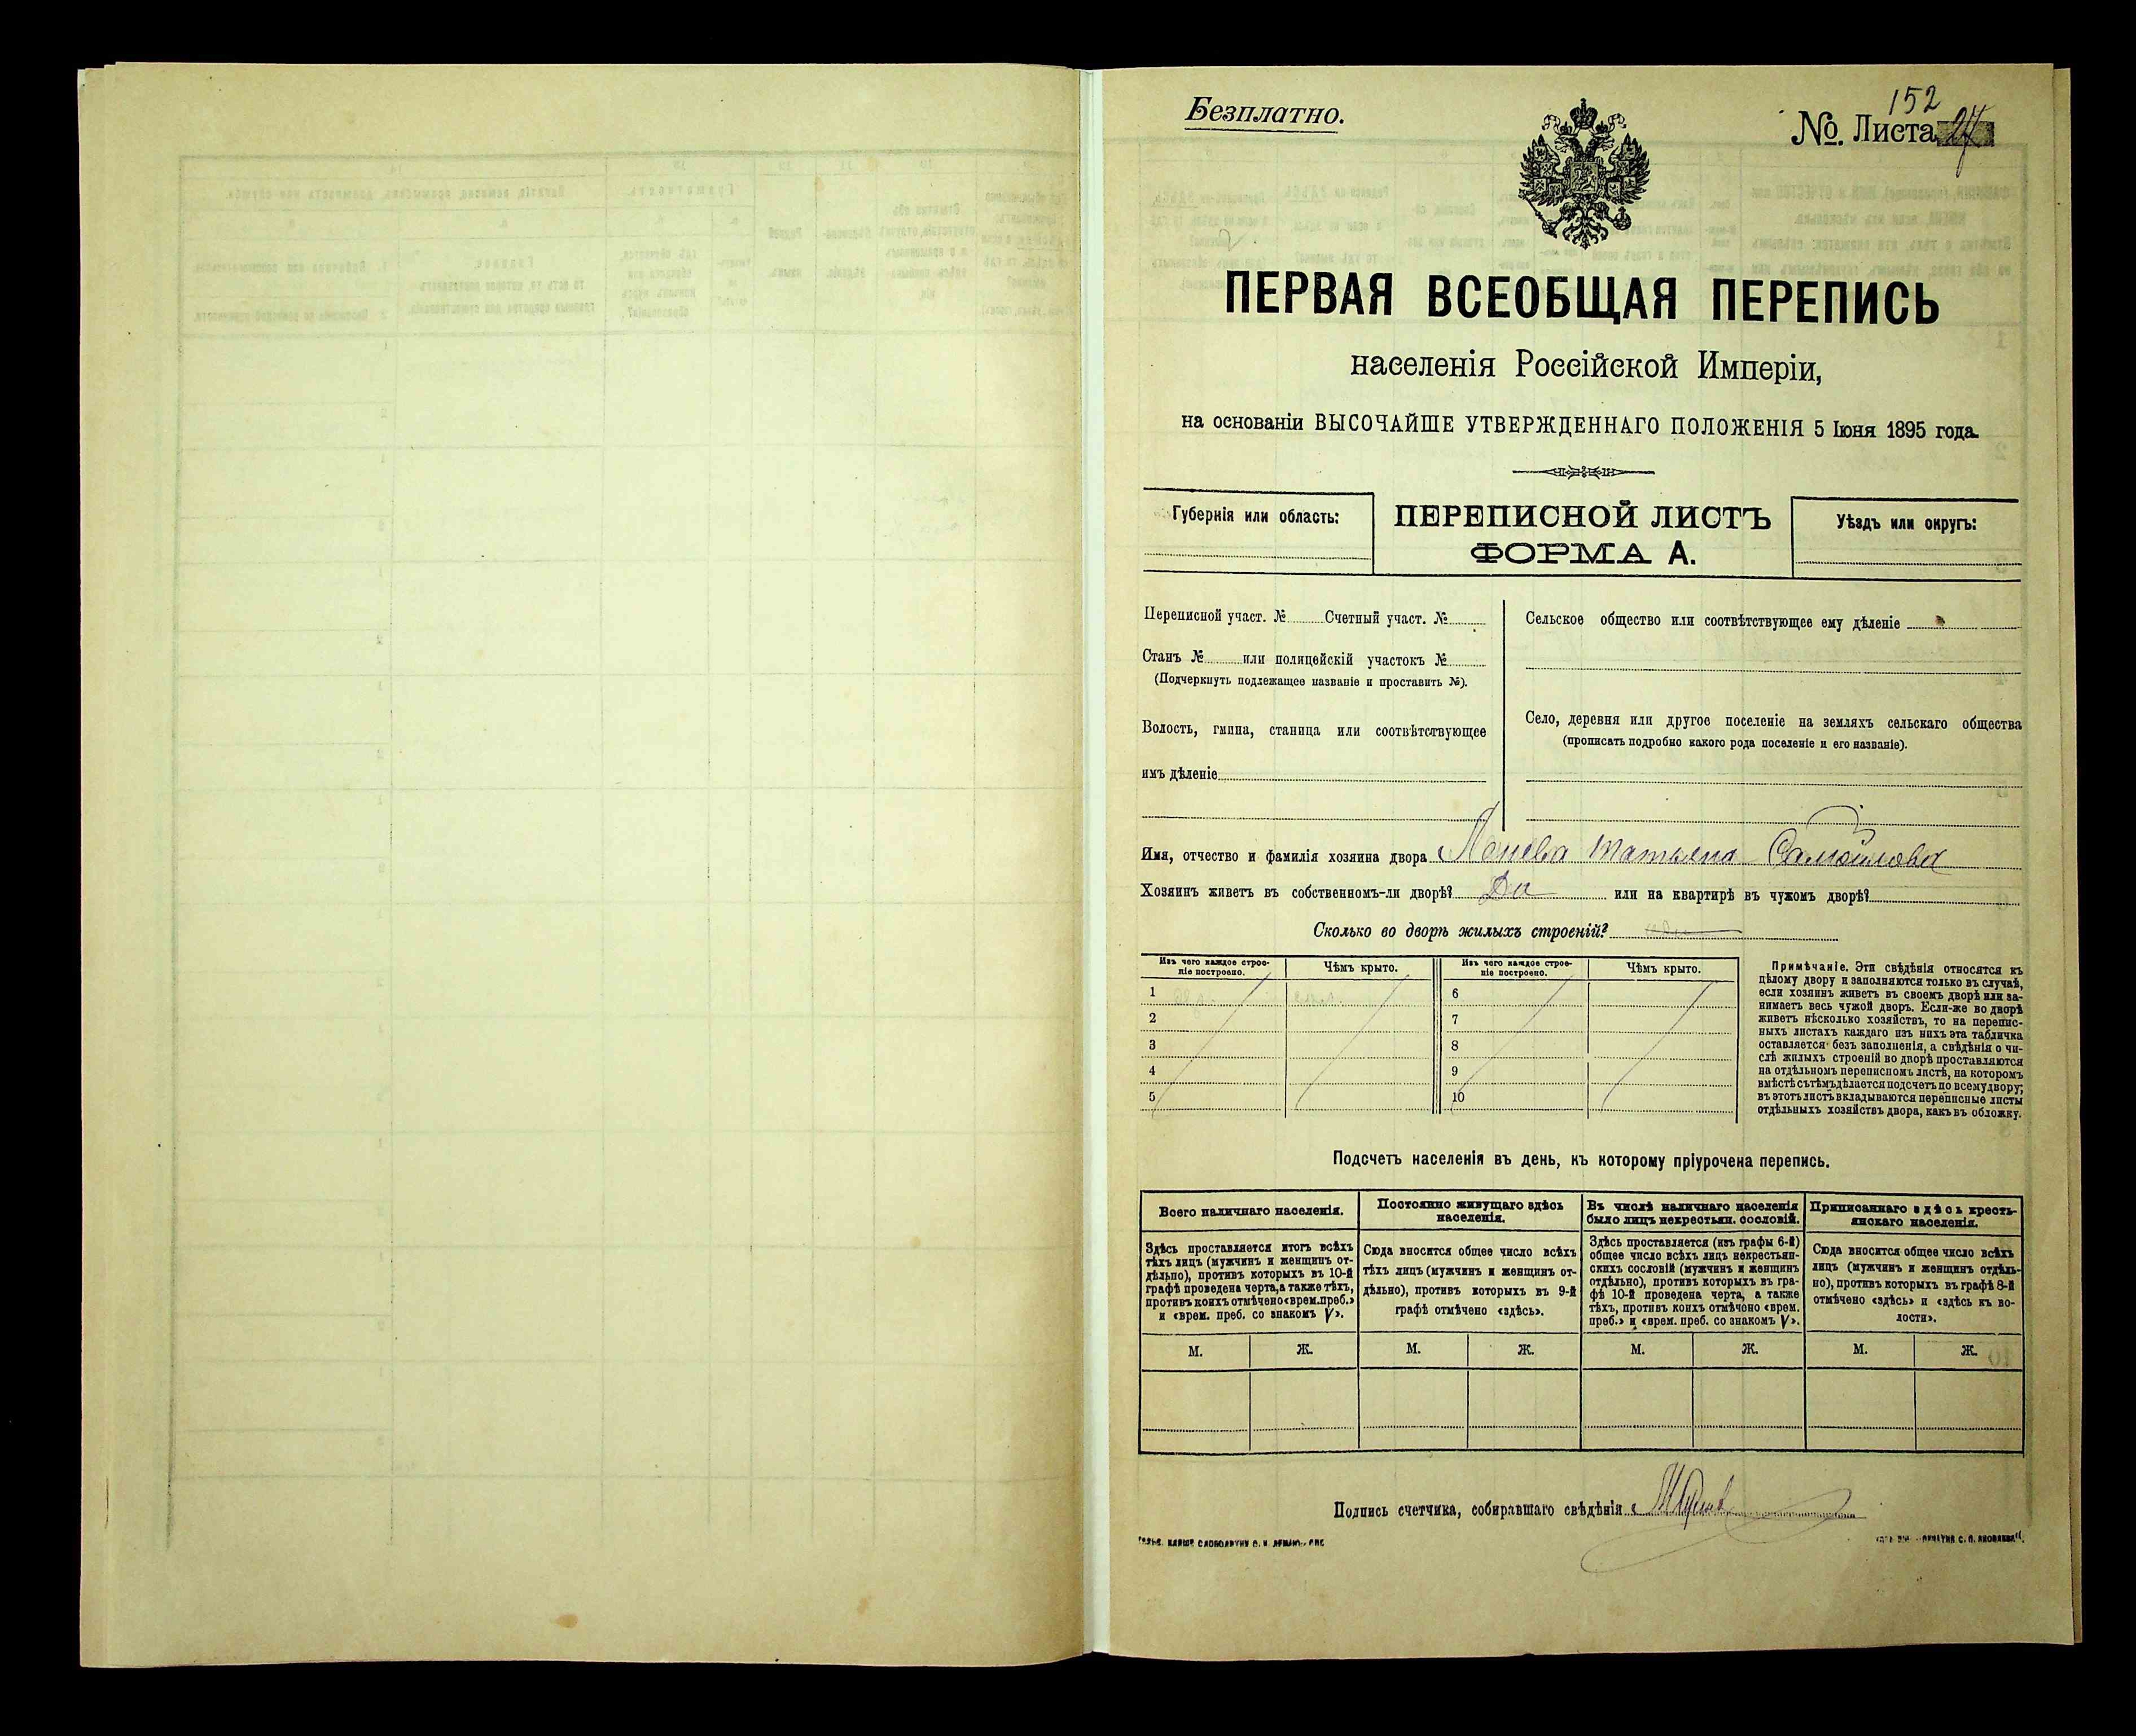 Безплатно.
152
№. Листа 27
ПЕРВАЯ ВСЕОБЩАЯ ПЕРЕПИСЬ
населенія Россійской Имперіи,
на основаніи ВЫСОЧАЙШЕ УТВЕРЖДЕННАГО ПОЛОЖЕНІЯ 5 Іюня 1895 года.
Губернія или область:
ПЕРЕПИСНОЙ ЛИСТЪ
ФОРМА А.
Уѣздъ или округъ:
Переписной участ. № Счетный участ. №
Станъ № или полицейскій участокъ №
(Подчеркнуть подлежащее названіе и проставить №).
Волость, гмина, станица или соотвѣтствующее
имъ дѣленіе
Сельское общество или соотвѣтствующее ему дѣленіе
Село, деревня или другое поселеніе на земляхъ сельскаго общества
(прописать подробно какого рода поселеніе и его названіе).
Имя, отчество и фамилія хозяина двора Татьяна Самойлова
Хозяинъ живетъ въ собственномъ-ли дворѣ? Да или на квартирѣ въ чужомъ дворѣ?
Сколько во дворѣ жилыхъ строеній?
Изъ чего каждое строе-
ніе построено.
Чѣмъ крыто.
Изъ чего каждое строе-
ніе построено.
Чѣмъ крыто.
1
6
2
7
3
8
4
9
5
10
Примѣчаніе. Эти свѣдѣнія относятся къ
цѣлому двору и заполняются только въ случаѣ,
если хозяинъ живетъ въ своемъ дворѣ или за-
нимаетъ весь чужой дворъ. Если-же во дворѣ
живетъ нѣсколько хозяйствъ, то на перепис-
ныхъ листахъ каждаго изъ нихъ эта табличка
оставляется безъ заполненія, а свѣдѣнія о чи-
слѣ жилыхъ строеній во дворѣ проставляются
на отдѣльномъ переписномъ листѣ, на которомъ
вмѣстѣ съ тѣмъ дѣлается подсчетъ по всему двору;
въ этотъ листъ вкладываются переписные листы
отдѣльныхъ хозяйствъ двора, какъ въ обложку.
Подсчетъ населенія въ день, къ которому пріурочена перепись.
Всего наличнаго населенія.
Постоянно живущаго здѣсь
населенія.
Въ числѣ наличнаго населенія
было лицъ некрестьян. сословій.
Приписаннаго здѣсь кресть-
янскаго населенія.
Здѣсь проставляется итогъ всѣхъ
тѣхъ лицъ (мужчинъ и женщинъ от-
дѣльно), противъ которыхъ въ 10-й
графѣ проведена черта, а также тѣхъ,
противъ коихъ отмѣчено «врем. преб.»
и «врем. преб. со знакомъ V».
Сюда вносится общее число всѣхъ
тѣхъ лицъ (мужчинъ и женщинъ от-
дѣльно), противъ которыхъ въ 9-й
графѣ отмѣчено «здѣсь».
Здѣсь проставляется (изъ графы 6-й)
общее число всѣхъ лицъ некрестьян-
скихъ сословій (мужчинъ и женщинъ
отдѣльно), противъ которыхъ въ гра-
фѣ 10-й проведена черта, а также
тѣхъ, противъ коихъ отмѣчено «врем.
преб.» и «врем. преб. со знакомъ V».
Сюда вносится общее число всѣхъ
лицъ (мужчинъ и женщинъ отдѣль-
но), противъ которыхъ въ графѣ 8-й
отмѣчено «здѣсь» и «здѣсь къ во-
лости».
М. Ж. М. Ж. М. Ж. М. Ж.
Подпись счетчика, собиравшаго свѣдѣнія